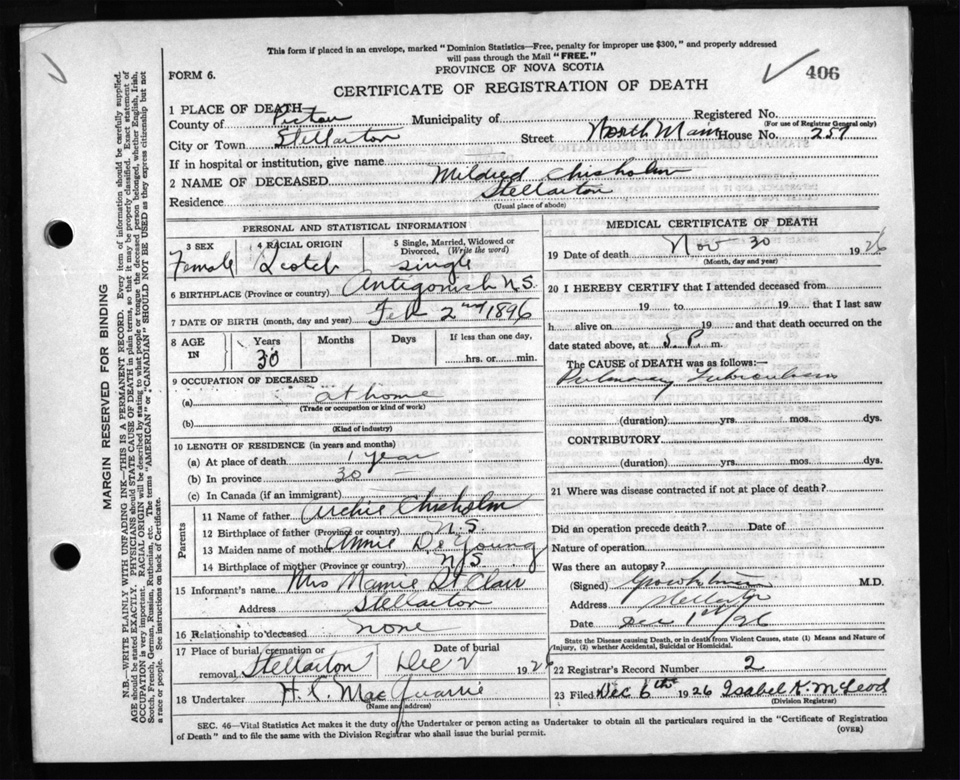 This form if placed in an envelope, marked "Dominion Statistics—Free, penalty for improper use $300," and properly addressed
will pass through the Mail "FREE."
PROVINCE OF NOVA SCOTIA
FORM 6.
406
CERTIFICATE OF REGISTRATION OF DEATH
1 PLACE OF DEATH
County of Pictou Municipality of Registered No.
(For use of Registrar General only)
City or Town Stellarton Street North Main House No. 257
If in hospital or institution, give name
2 NAME OF DECEASED Mildred Chisholm
Residence Stellarton
(Usual place of abode)
PERSONAL AND STATISTICAL INFORMATION
3 SEX 4 RACIAL ORIGIN 5 Single, Married, Widowed or Divorced, (Write the word)
Female Scotch single
6 BIRTHPLACE (Province or country) Antigonish N.S.
7 DATE OF BIRTH (month, day and year) Feb 2nd 1896
8 AGE IN Years Months Days If less than one day,
30 hrs. or min.
9 OCCUPATION OF DECEASED
(a) at home
(Trade or occupation or kind of work)
(b)
(Kind of industry)
10 LENGTH OF RESIDENCE (in years and months)
(a) At place of death 1 year
(b) In province 30 —
(c) In Canada (if an immigrant)
Parents
11 Name of father Archie Chisholm
12 Birthplace of father (Province or country) N.S.
13 Maiden name of mother Annie De Young
14 Birthplace of mother (Province or country) N.S.
15 Informant's name Mrs Mamie St Clair
Address Stellarton
16 Relationship to deceased none
17 Place of burial, cremation or removal Stellarton Date of burial Dec 2 1926
18 Undertaker H. L. MacQuarrie
(Name and address)
MEDICAL CERTIFICATE OF DEATH
19 Date of death Nov 30 1926
(Month, day and year)
20 I HEREBY CERTIFY that I attended deceased from
19 to 19 that I last saw
h alive on 19 and that death occurred on the
date stated above, at 5 P. m.
The CAUSE OF DEATH was as follows:—
Pulmonary Tuberculosis
(duration) yrs. mos. dys.
CONTRIBUTORY
(duration) yrs. mos. dys.
21 Where was disease contracted if not at place of death?
Did an operation precede death? Date of
Nature of operation
Was there an autopsy?
(Signed) M.D.
Address Stellarton
Date Dec 1st/26
State the Disease causing Death, or in death from Violent Causes, state (1) Means and Nature of
Injury, (2) whether Accidental, Suicidal or Homicidal.
22 Registrar's Record Number 2
23 Filed Dec 6th 1926 Isabel K. McLeod
(Division Registrar)
SEC. 46—Vital Statistics Act makes it the duty of the Undertaker or person acting as Undertaker to obtain all the particulars required in the "Certificate of Registration
of Death" and to file the same with the Division Registrar who shall issue the burial permit.
(OVER)
MARGIN RESERVED FOR BINDING
N.B.—WRITE PLAINLY WITH UNFADING INK—THIS IS A PERMANENT RECORD. Every item of information should be carefully supplied.
AGE should be stated EXACTLY. PHYSICIANS should STATE CAUSE OF DEATH in plain terms, so that it may be properly classified. Exact statement of
OCCUPATION is very important. RACIAL ORIGIN will be described by stating to what people or tongue the deceased person belonged, whether English, Irish,
Scotch, French, German, Russian, Ruthenian, etc. The terms "AMERICAN" or "CANADIAN" SHOULD NOT BE USED as they express citizenship but not
a race or people. See instructions on back of Certificate.